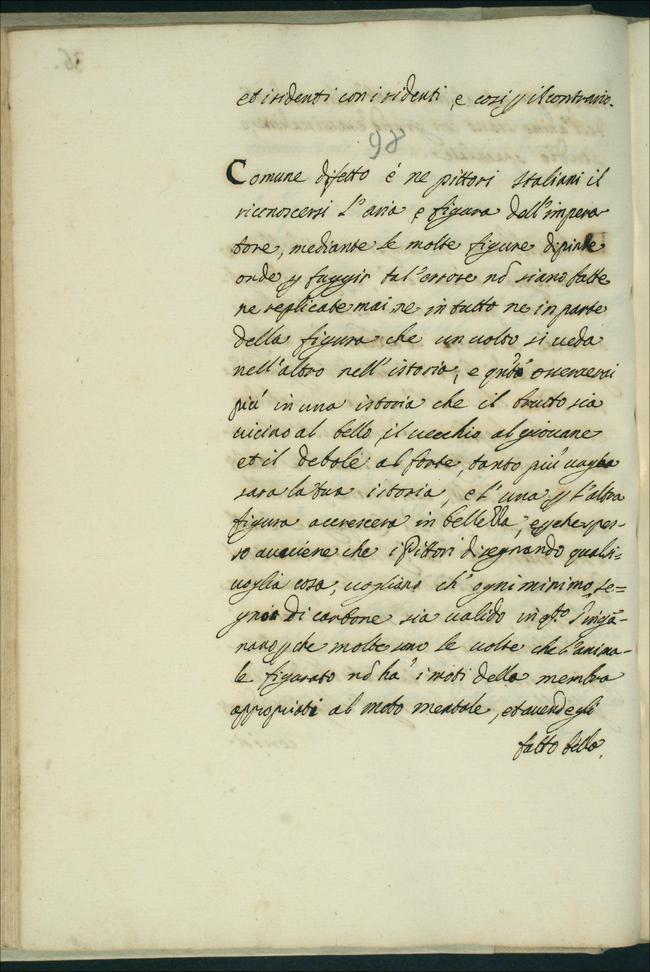 et i ridenti con i ridenti, e cosi p il contrario.
98
Comune difetto é ne pittori Italiani il
riconoscersi l'aria e figura dell'impera-
tore, mediante le molte figure dipinte
onde p fuggir tal'errore nō siano fatte
ne replicate mai, ne in tutto ne in parte
della figura che un uolto si ueda
nell'altro nell'istoria, e qn̄to osseruerai
piú in una istoria che il brutto sia
uicino al bello, il uecchio al giouane
et il debole al forte, tanto piú uagha
sara la tua istoria, e l'una p l'altra
figura accrescera in bellezza, e p che spes-
so auuiene che i Pittori disegnando qualsi=
uoglia cosa, uogliano ch'ogni minimo se=
gno di carbone sia ualido in q.to s'ingā-
nano, p che molte sono le uolte che l'anima-
le figurato nō há i moti delle membra
appropriati al moto mentale, et auendo egli
fatto bella